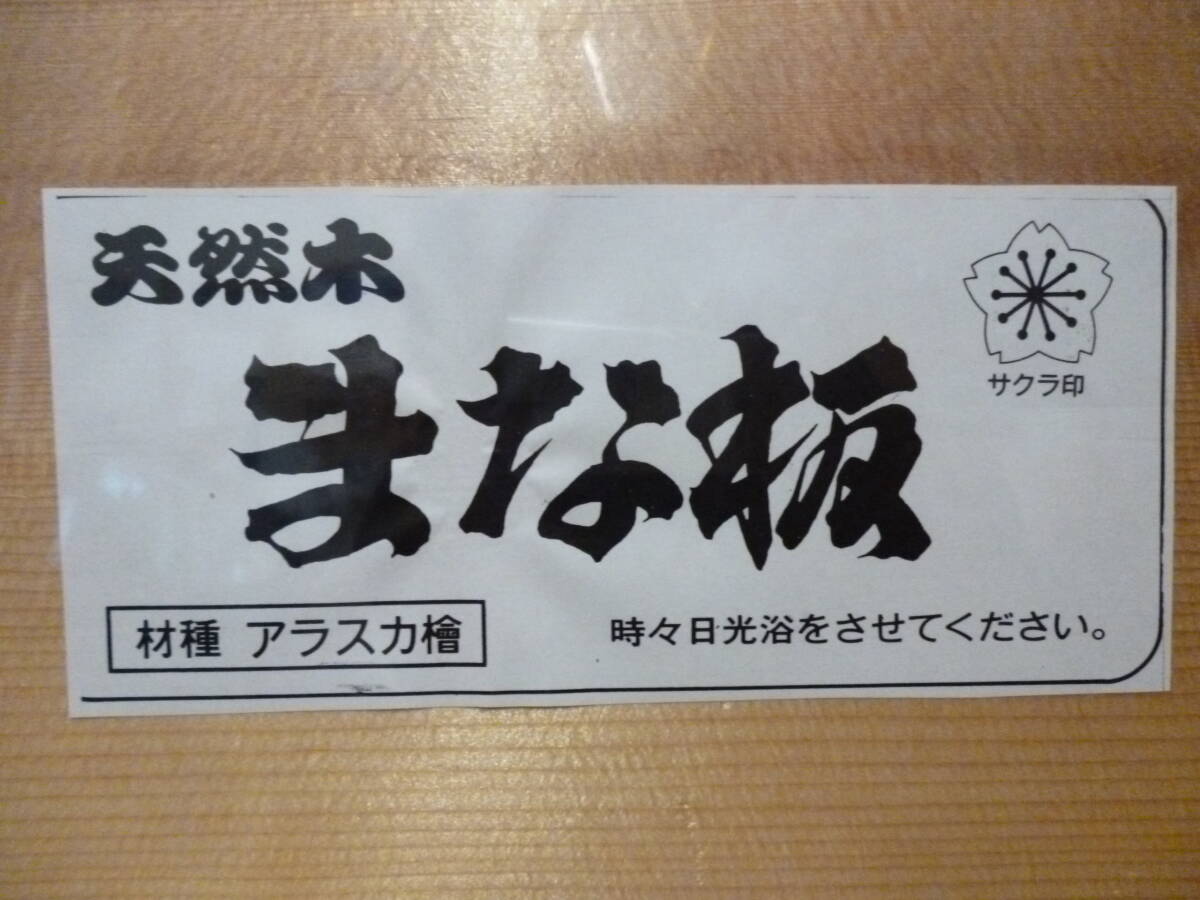 天然木
サクラ印
まな板
材種 アラスカ檜
時々日光浴をさせてください。